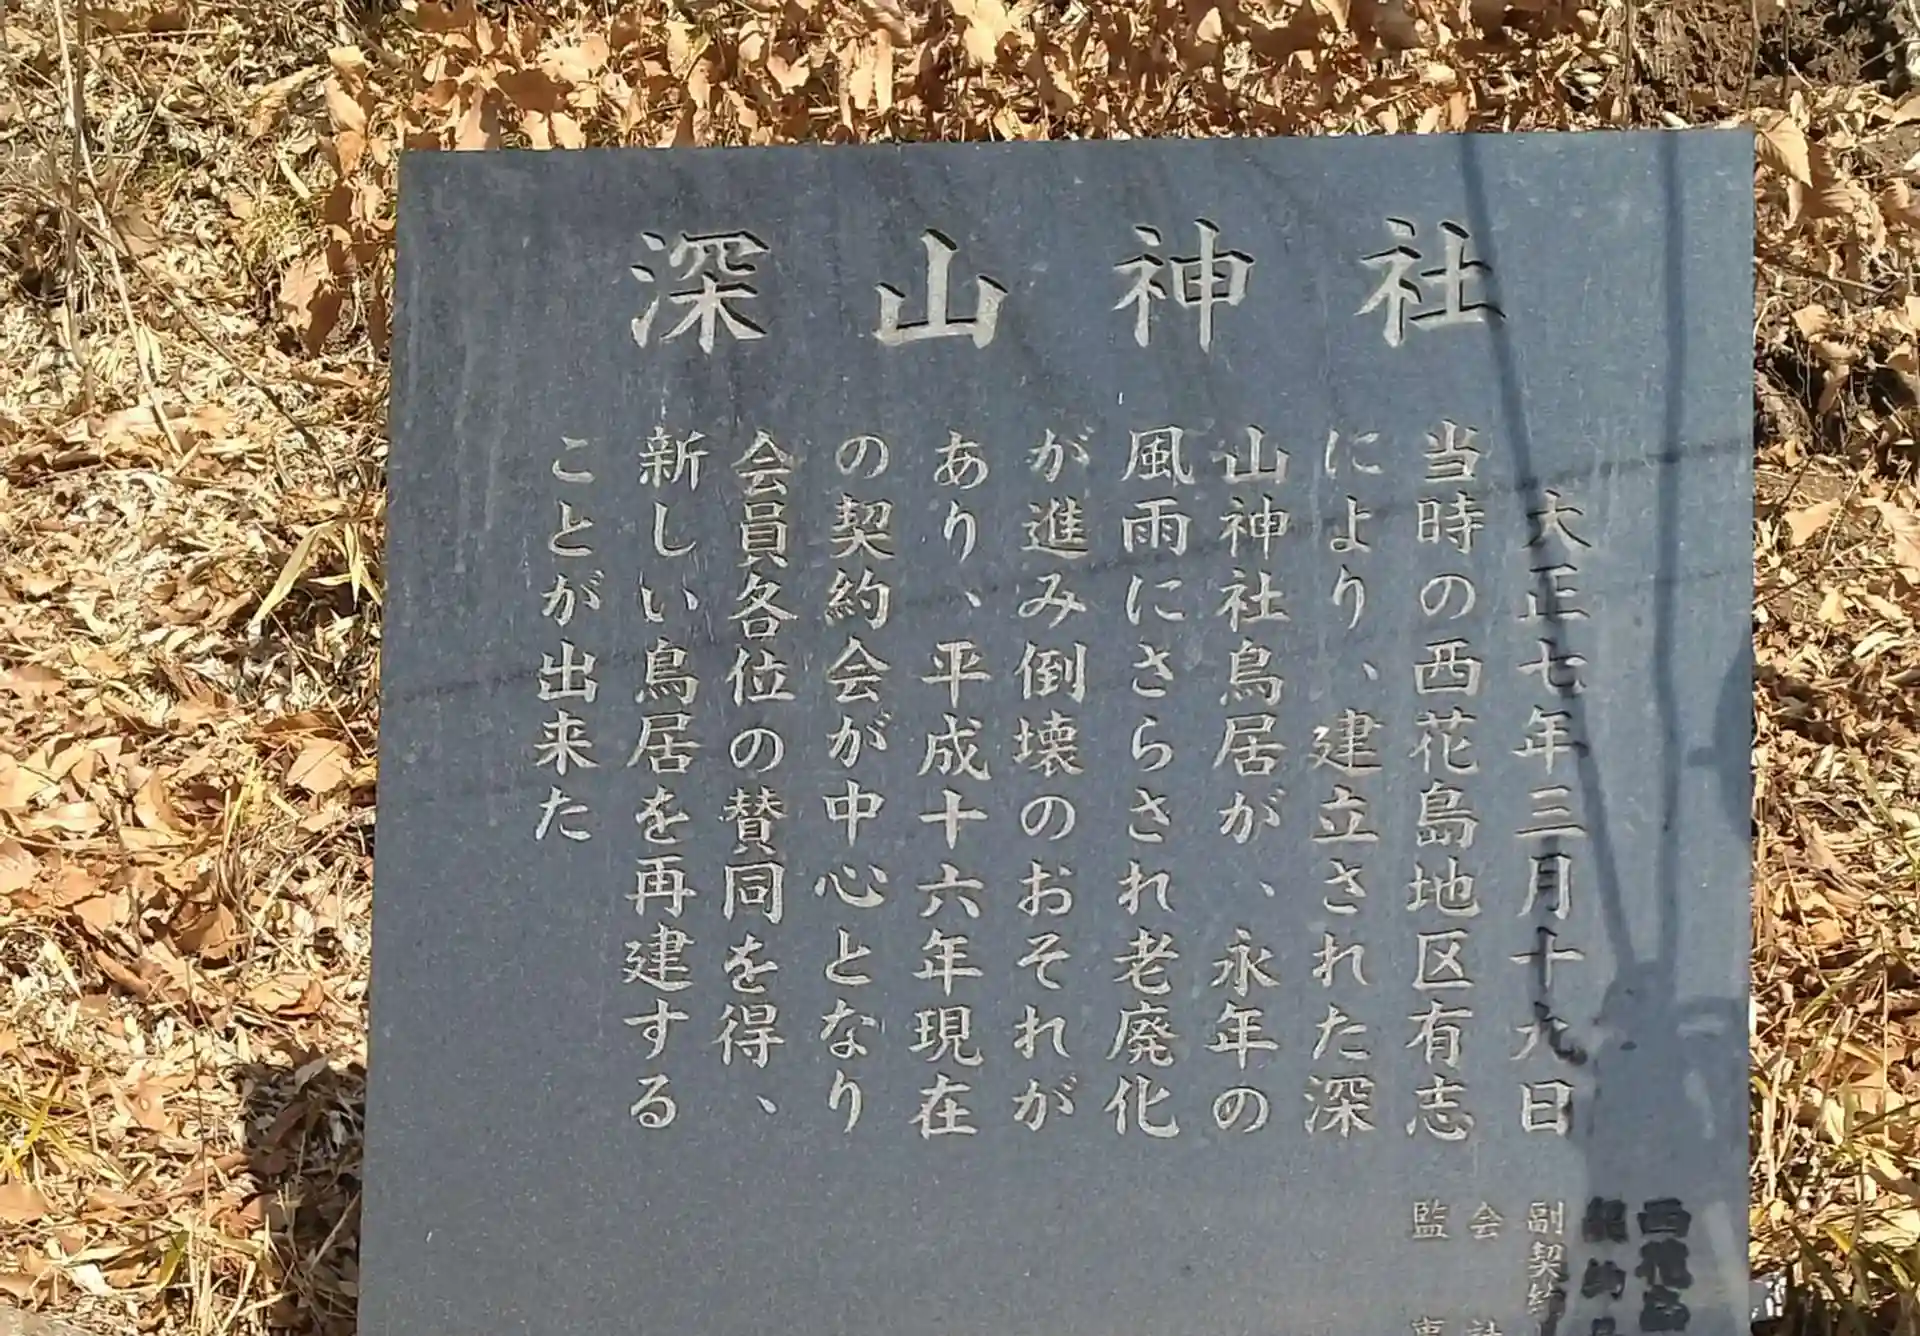 深山神社
大正七年三月十九日
当時の西花島地区有志
により、建立された深
山神社鳥居が、永年の
風雨にさらされ老廃化
が進み倒壊のおそれが
あり、平成十六年現在
の契約会が中心となり
会員各位の賛同を得、
新しい鳥居を再建する
ことが出来た
西花島
副契約
会計
監事